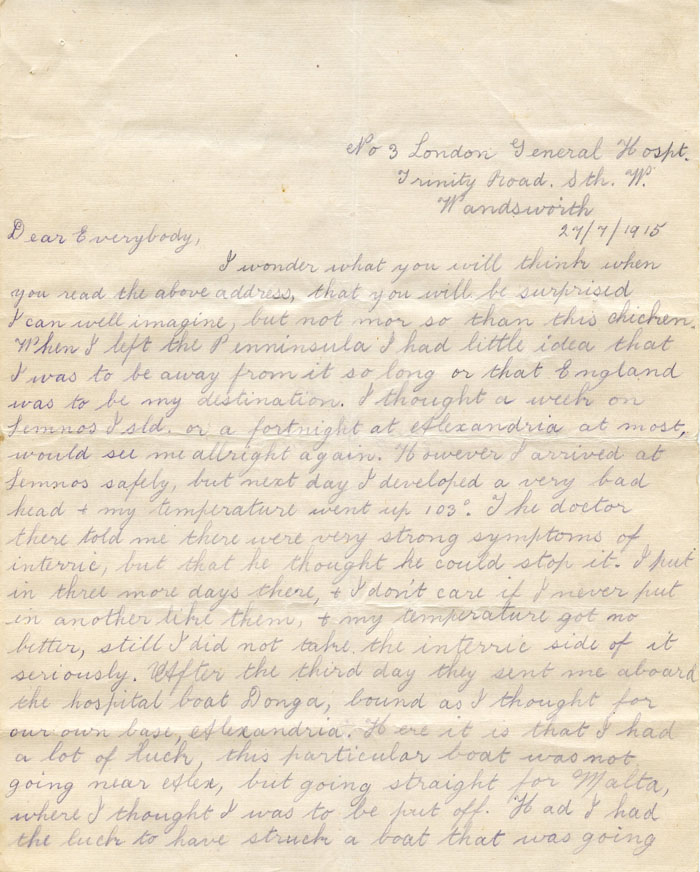 No 3 London General Hospt.
Trinity Road. Sth. W.
Wandsworth
27/7/1915
Dear Everybody,
I wonder what you will think when
you read the above address, that you will be surprised
I can well imagine, but not mor so than this chicken.
When I left the Penninsula I had little idea that
I was to be away from it so long or that England
was to be my destination. I thought a week on
Lemnos Isld. or a fortnight at Alexandria at most,
would see me allright again. However I arrived at
Lemnos safely, but next day I developed a very bad
head + my temperature went up 103°. The doctor
there told me there were very strong symptoms of
interric, but that he thought he could stop it. I put
in three more days there, + I don't care if I never put
in another like them, + my temperature got no
better, still I did not take the interric side of it
seriously. After the third day they sent me aboard
the hospital boat Donga, bound as I thought for
our own base, Alexandria. Here it is that I had
a lot of luck, this particular boat was not
going near Alex, but going straight for Malta,
where I thought I was to be put off. Had I had
the luck to have struck a boat that was going